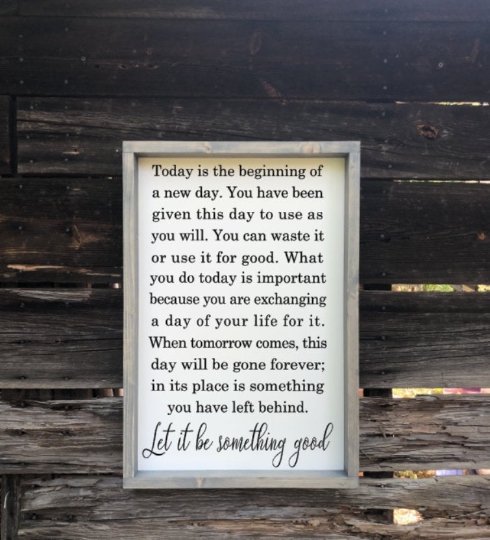 Today is the beginning of
a new day. You have been
given this day to use as
you will. You can waste it
or use it for good. What
you do today is important
because you are exchanging
a day of your life for it.
When tomorrow comes, this
day will be gone forever;
in its place is something
you have left behind.
Let it be something good